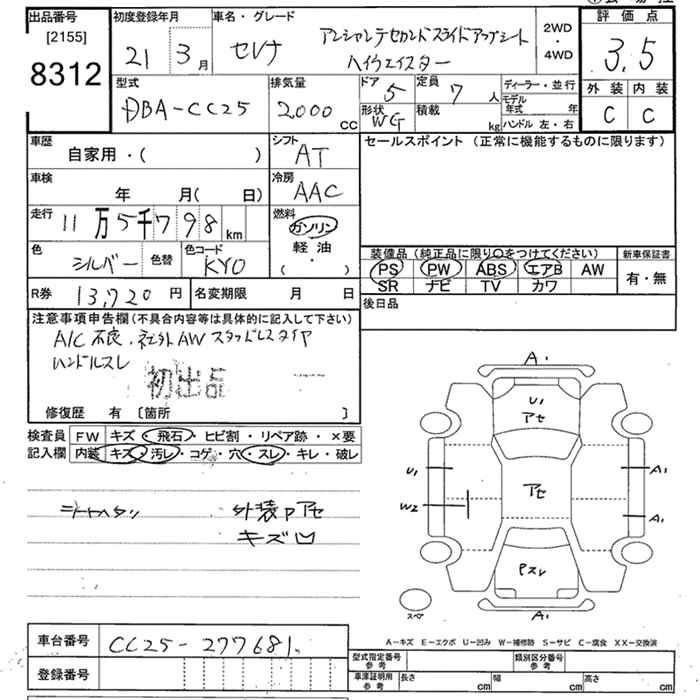 出品番号
[2155]
8312
初度登録年月
21 3月
車名・グレード
セレナ
アンシャンテセカンドスライドアップシート
ハイウェイスター
2WD
・
4WD
評価点
3.5
外装 内装
C C
型式
DBA-CC25
排気量
2000 cc
ドア 5
形状 WG
定員 7 人
積載 kg
ディーラー・並行
モデル年式 年
ハンドル 左・右
車歴
自家用・( )
シフト
AT
セールスポイント (正常に機能するものに限ります)
車検
年 月( 日)
冷房
AAC
走行
11万5千798km
燃料
ガソリン
軽油
( ・ )
色
シルバー
色替
色コード
KY0
装備品 (純正品に限り○をつけてください)
PS PW ABS エアB AW
SR ナビ TV カワ
新車保証書
有・無
R券 13,720円
名変期限 月 日
後日品
注意事項申告欄(不具合内容等は具体的に記入して下さい)
A/C不良、社外AWスタッドレスタイヤ
ハンドルスレ
初出品
修復歴 有 〔箇所 〕
検査員
記入欄
FW キズ・飛石・ヒビ割・リペア跡・×要
内装 キズ・汚レ・コゲ・穴・スレ・キレ・破レ
シートヘタリ
外装Pアセ
キズ凹
A1
U1
アセ
U1
A1
アセ
W2
A1
Pスレ
スペア
A1
A-キズ E-エクボ U-凹み W-補修跡 S-サビ C-腐食 XX-交換済
車台番号 CC25-277681
登録番号
型式指定番号
参考
類別区分番号
参考
車庫証明用
参考
長さ cm
幅 cm
高さ cm